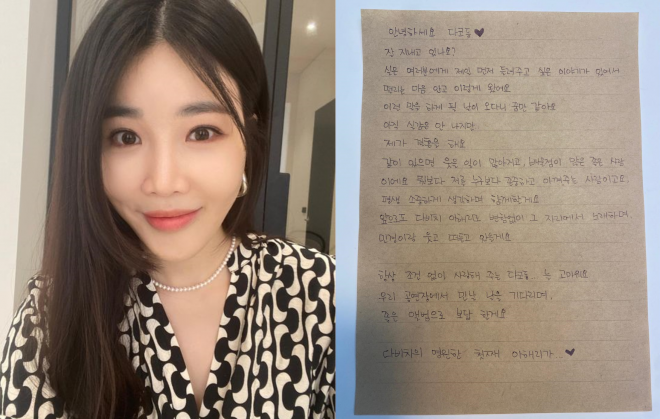 안녕하세요 다코들 ♥
잘 지내고 있나요?
실은 여러분에게 제일 먼저 들려주고 싶은 이야기가 있어서
떨리는 마음 안고 이렇게 왔어요
이런 말을 하게 될 날이 오다니 꿈만 같아요
아직 실감은 안 나지만
제가 결혼을 해요
같이 있으면 웃을 일이 많아지고, 배울점이 많은 좋은 사람
이에요 뭣보다 저를 누구보다 존중하고 아껴주는 사람이고요
평생 소중하게 생각하며 함께할게요
앞으로도 다비치 이해리로 변함없이 그 자리에서 노래하며,
민경이랑 웃고 떠들고 만들게요
항상 조건 없이 사랑해 주는 다코들 늘 고마워요
우리 공연장에서 만날 날을 기다리며,
좋은 앨범으로 보답 할게요
다비치의 영원한 첫째 이해리가... ♥